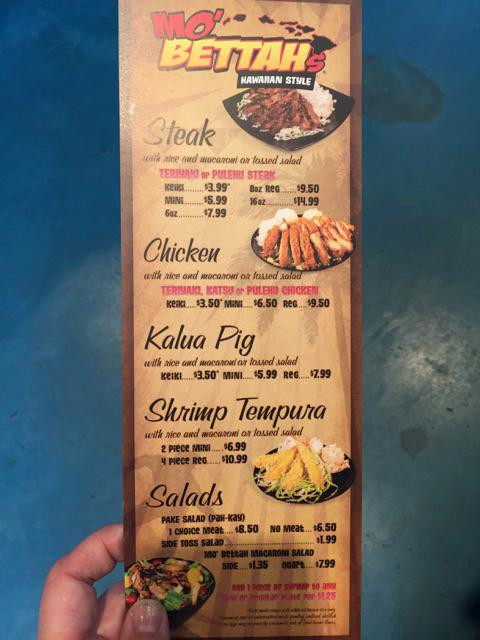 MO'
BETTAHS
HAWAIIAN STYLE
Steak
with rice and macaroni or tossed salad
TERIYAKI or PULEHU STEAK
KEIKI.......$3.99* 8oz REG.....$9.50
MINI.........$5.99 16oz.........$14.99
6oz..........$7.99
Chicken
with rice and macaroni or tossed salad
TERIYAKI, KATSU or PULEHU CHICKEN
KEIKI....$3.50* MINI.....$6.50 REG....$9.50
Kalua Pig
with rice and macaroni or tossed salad
KEIKI.....$3.50* MINI.....$5.99 REG.....$7.99
Shrimp Tempura
with rice and macaroni or tossed salad
2 PIECE MINI.....$6.99
4 PIECE REG....$10.99
Salads
PAKE SALAD (PAH-KAY)
1 CHOICE MEAT....$8.50 NO MEAT....$6.50
SIDE TOSS SALAD..............................$1.99
MO' BETTAH MACARONI SALAD
SIDE....$1.35 QUART....$7.99
ADD 1 PIECE OF SHRIMP TO ANY
MINI OR REGULAR PLATE FOR $1.25